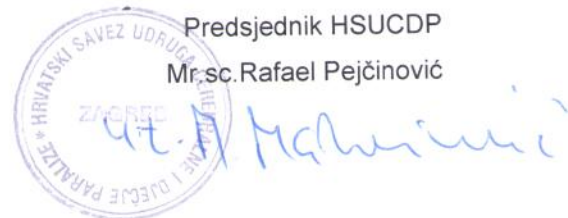 Predsjednik HSUCDP
Mr.sc.Rafael Pejčinović
HRVATSKI SAVEZ UDRUGA CEREBRALNE I DJEČJE PARALIZE *
ZAGREB